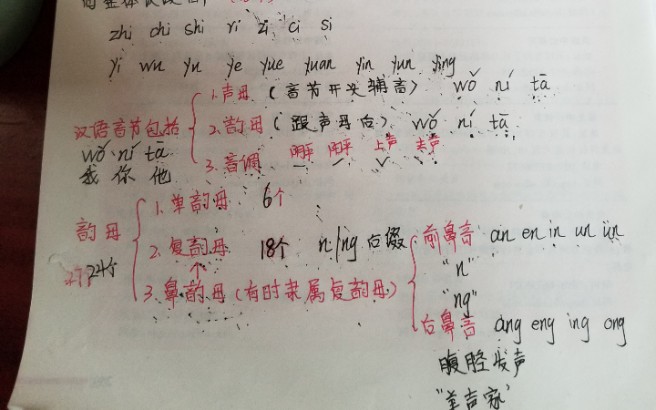 的整体认读音节
zhi chi shi ri zi ci si
yi wu yu ye yue yuan yin yun ying
汉语音节包括
1.声母（音节开头辅音） wǒ ní tā
2.韵母（跟声母后） wǒ ní tā
3.音调 阴平 阳平 上声 去声
wǒ ní tā
我 你 他
韵母
24个
1.单韵母 6个
2.复韵母 18个 n/ng后缀
3.鼻韵母（有时隶属复韵母）
前鼻音 an en in un ün
"n"
"ng"
后鼻音 ang eng ing ong
腹腔发声
"美声家"